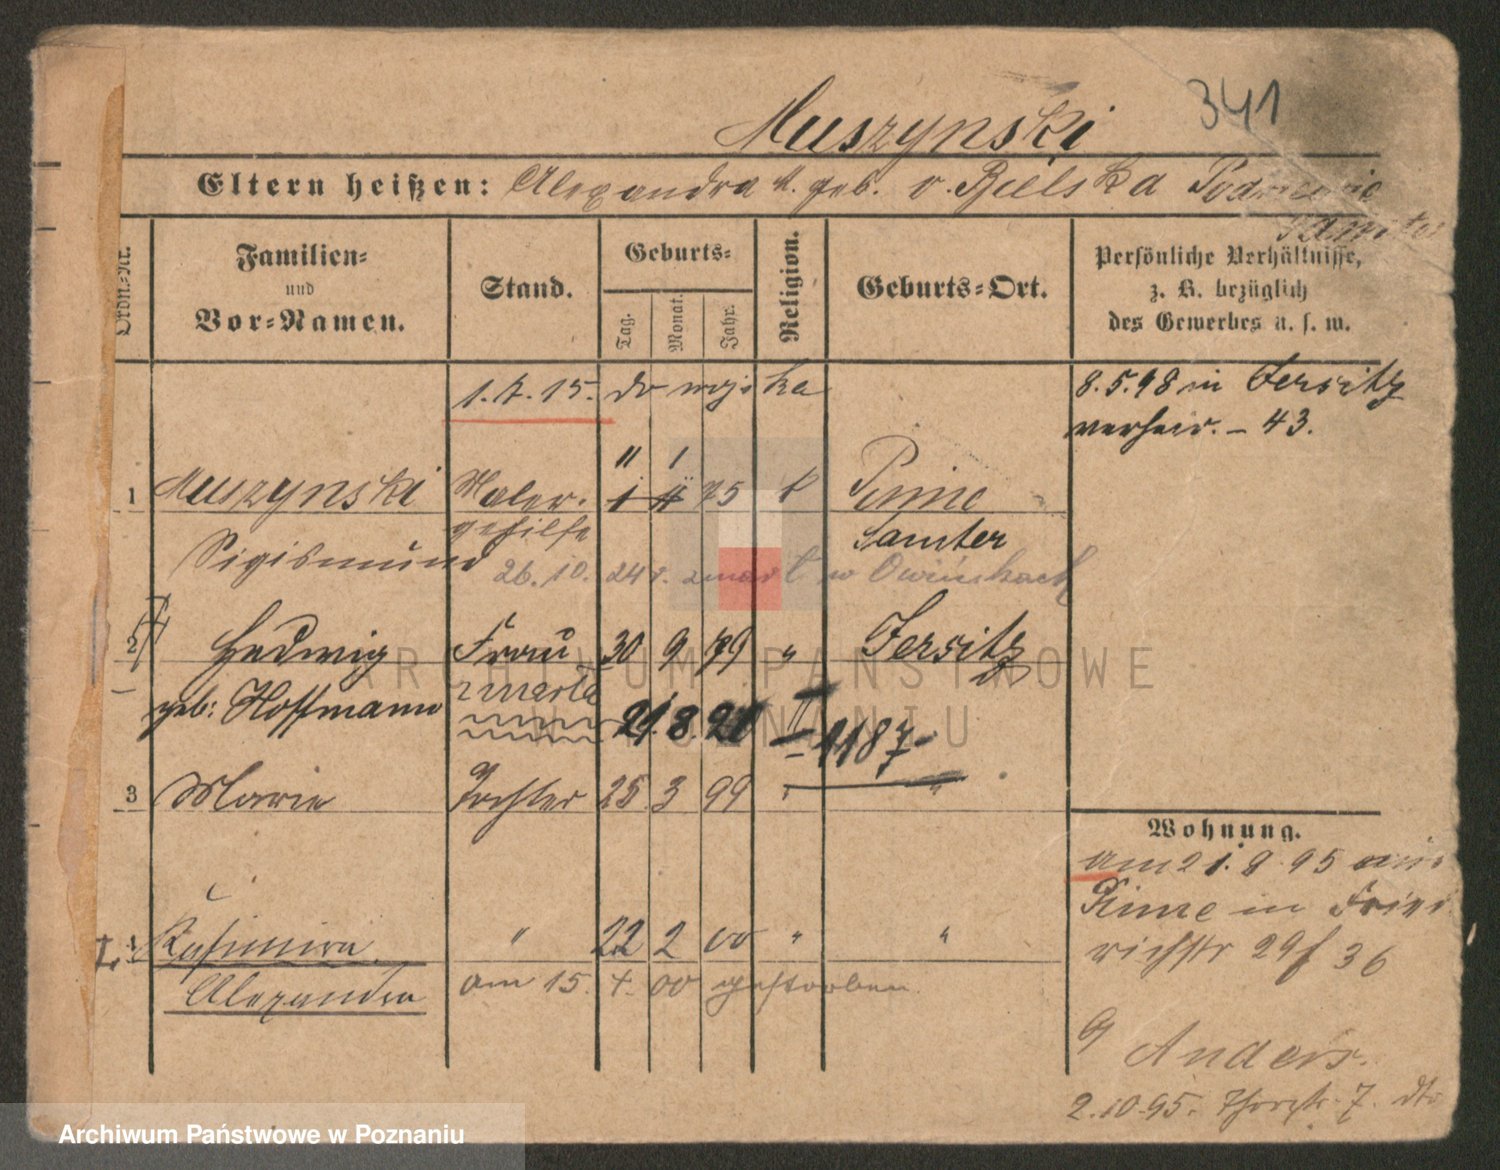 341
Muszynski
Eltern heißen: Alexandra M. geb. v. Bielska
Ordn.-Nr.
Familien-
und
Vor-Namen.
Stand.
Geburts-
Tag.
Monat.
Jahr.
Religion.
Geburts-Ort.
Persönliche Verhältnisse,
z. B. bezüglich
des Gewerbes u. s. w.
do wojska
8.5.98 in Jersitz
verheir. – 43.
11 1
1 Muszynski Maler- 1 11 75 k Pinne
gehilfe Samter
Sigismund
26.10.24 r. zmarł w
2 Hedwig Frau 30 9 79 " Jersitz
geb: Hoffmann zmarła
21.8.21 II 1187
3 Marie Tochter 25 3 99 " "
4 Kasimira " 22 2 00 " "
Alexandra am 15. 4. 00 gestorben.
Wohnung.
am 21.8.95 aus
Pinne in Fried
richstr 29 36
Anders.
2.10.95. 7.
ARCHIWUM PAŃSTWOWE
W POZNANIU
Archiwum Państwowe w Poznaniu